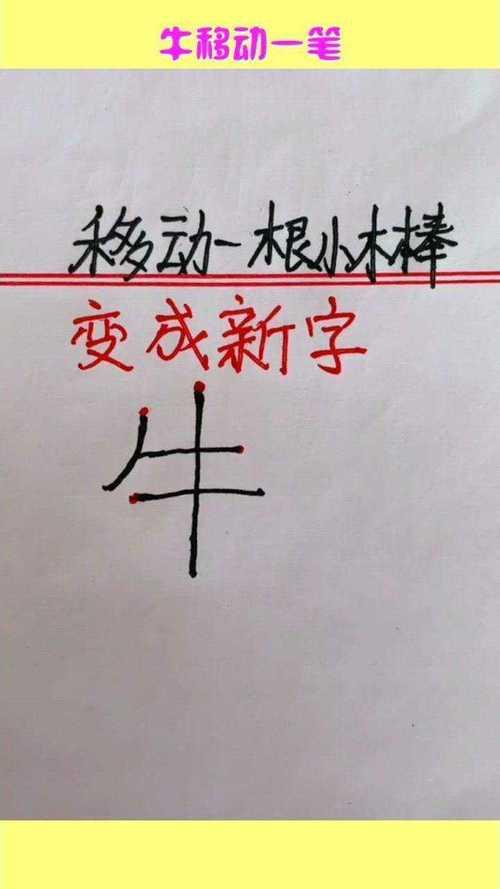 牛移动一笔
移动一根小木棒
变成新字
牛